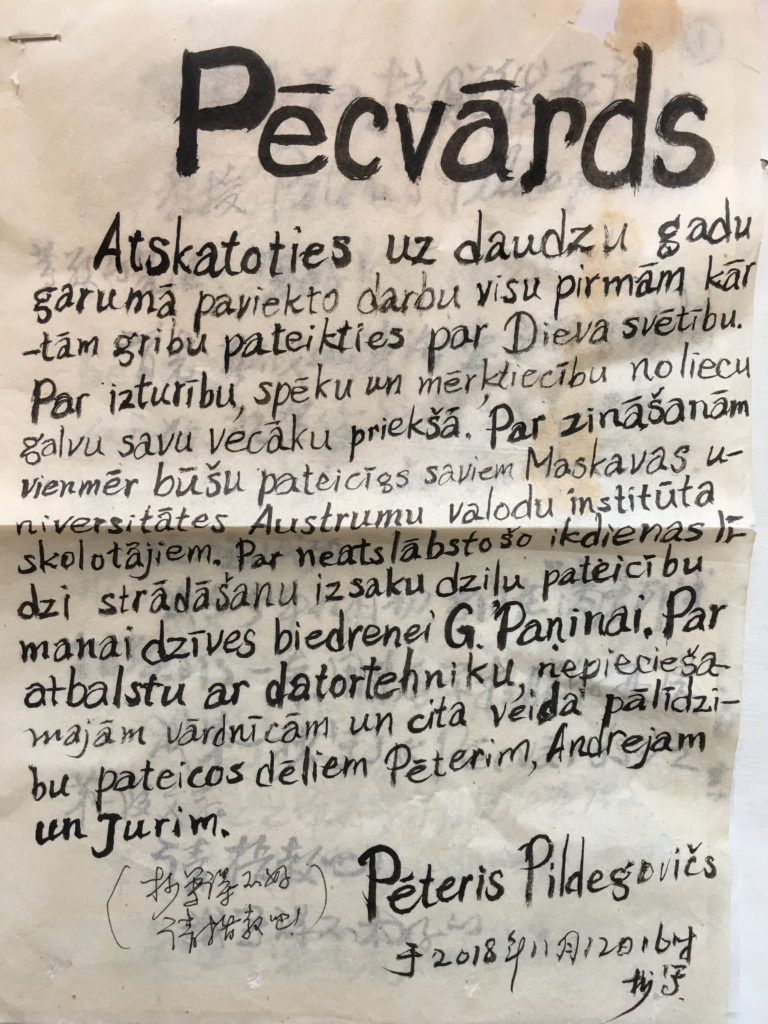 Pēcvārds
Atskatoties uz daudzu gadu
garumā paviekto darbu visu pirmām kār
-tām gribu pateikties par Dieva svētību.
Par izturību, spēku un mērķtiecību noliecu
galvu savu vecāku priekšā. Par zināšanām
vienmēr būšu pateicīgs saviem Maskavas u-
niversitātes Austrumu valodu institūta
skolotājiem. Par neatslābstošo ikdienas lī-
dzi strādāšanu izsaku dziļu pateicību
manai dzīves biedrenei G. Paņinai. Par
atbalstu ar datortehniku, nepiecieša-
majām vārdnīcām un cita veida palīdzi-
bu pateicos dēliem Pēterim, Andrejam
un Jurim.
Pēteris Pildegovičs
(抄写得不好
请指教吧!)
于2018年11月12日16时
抄写